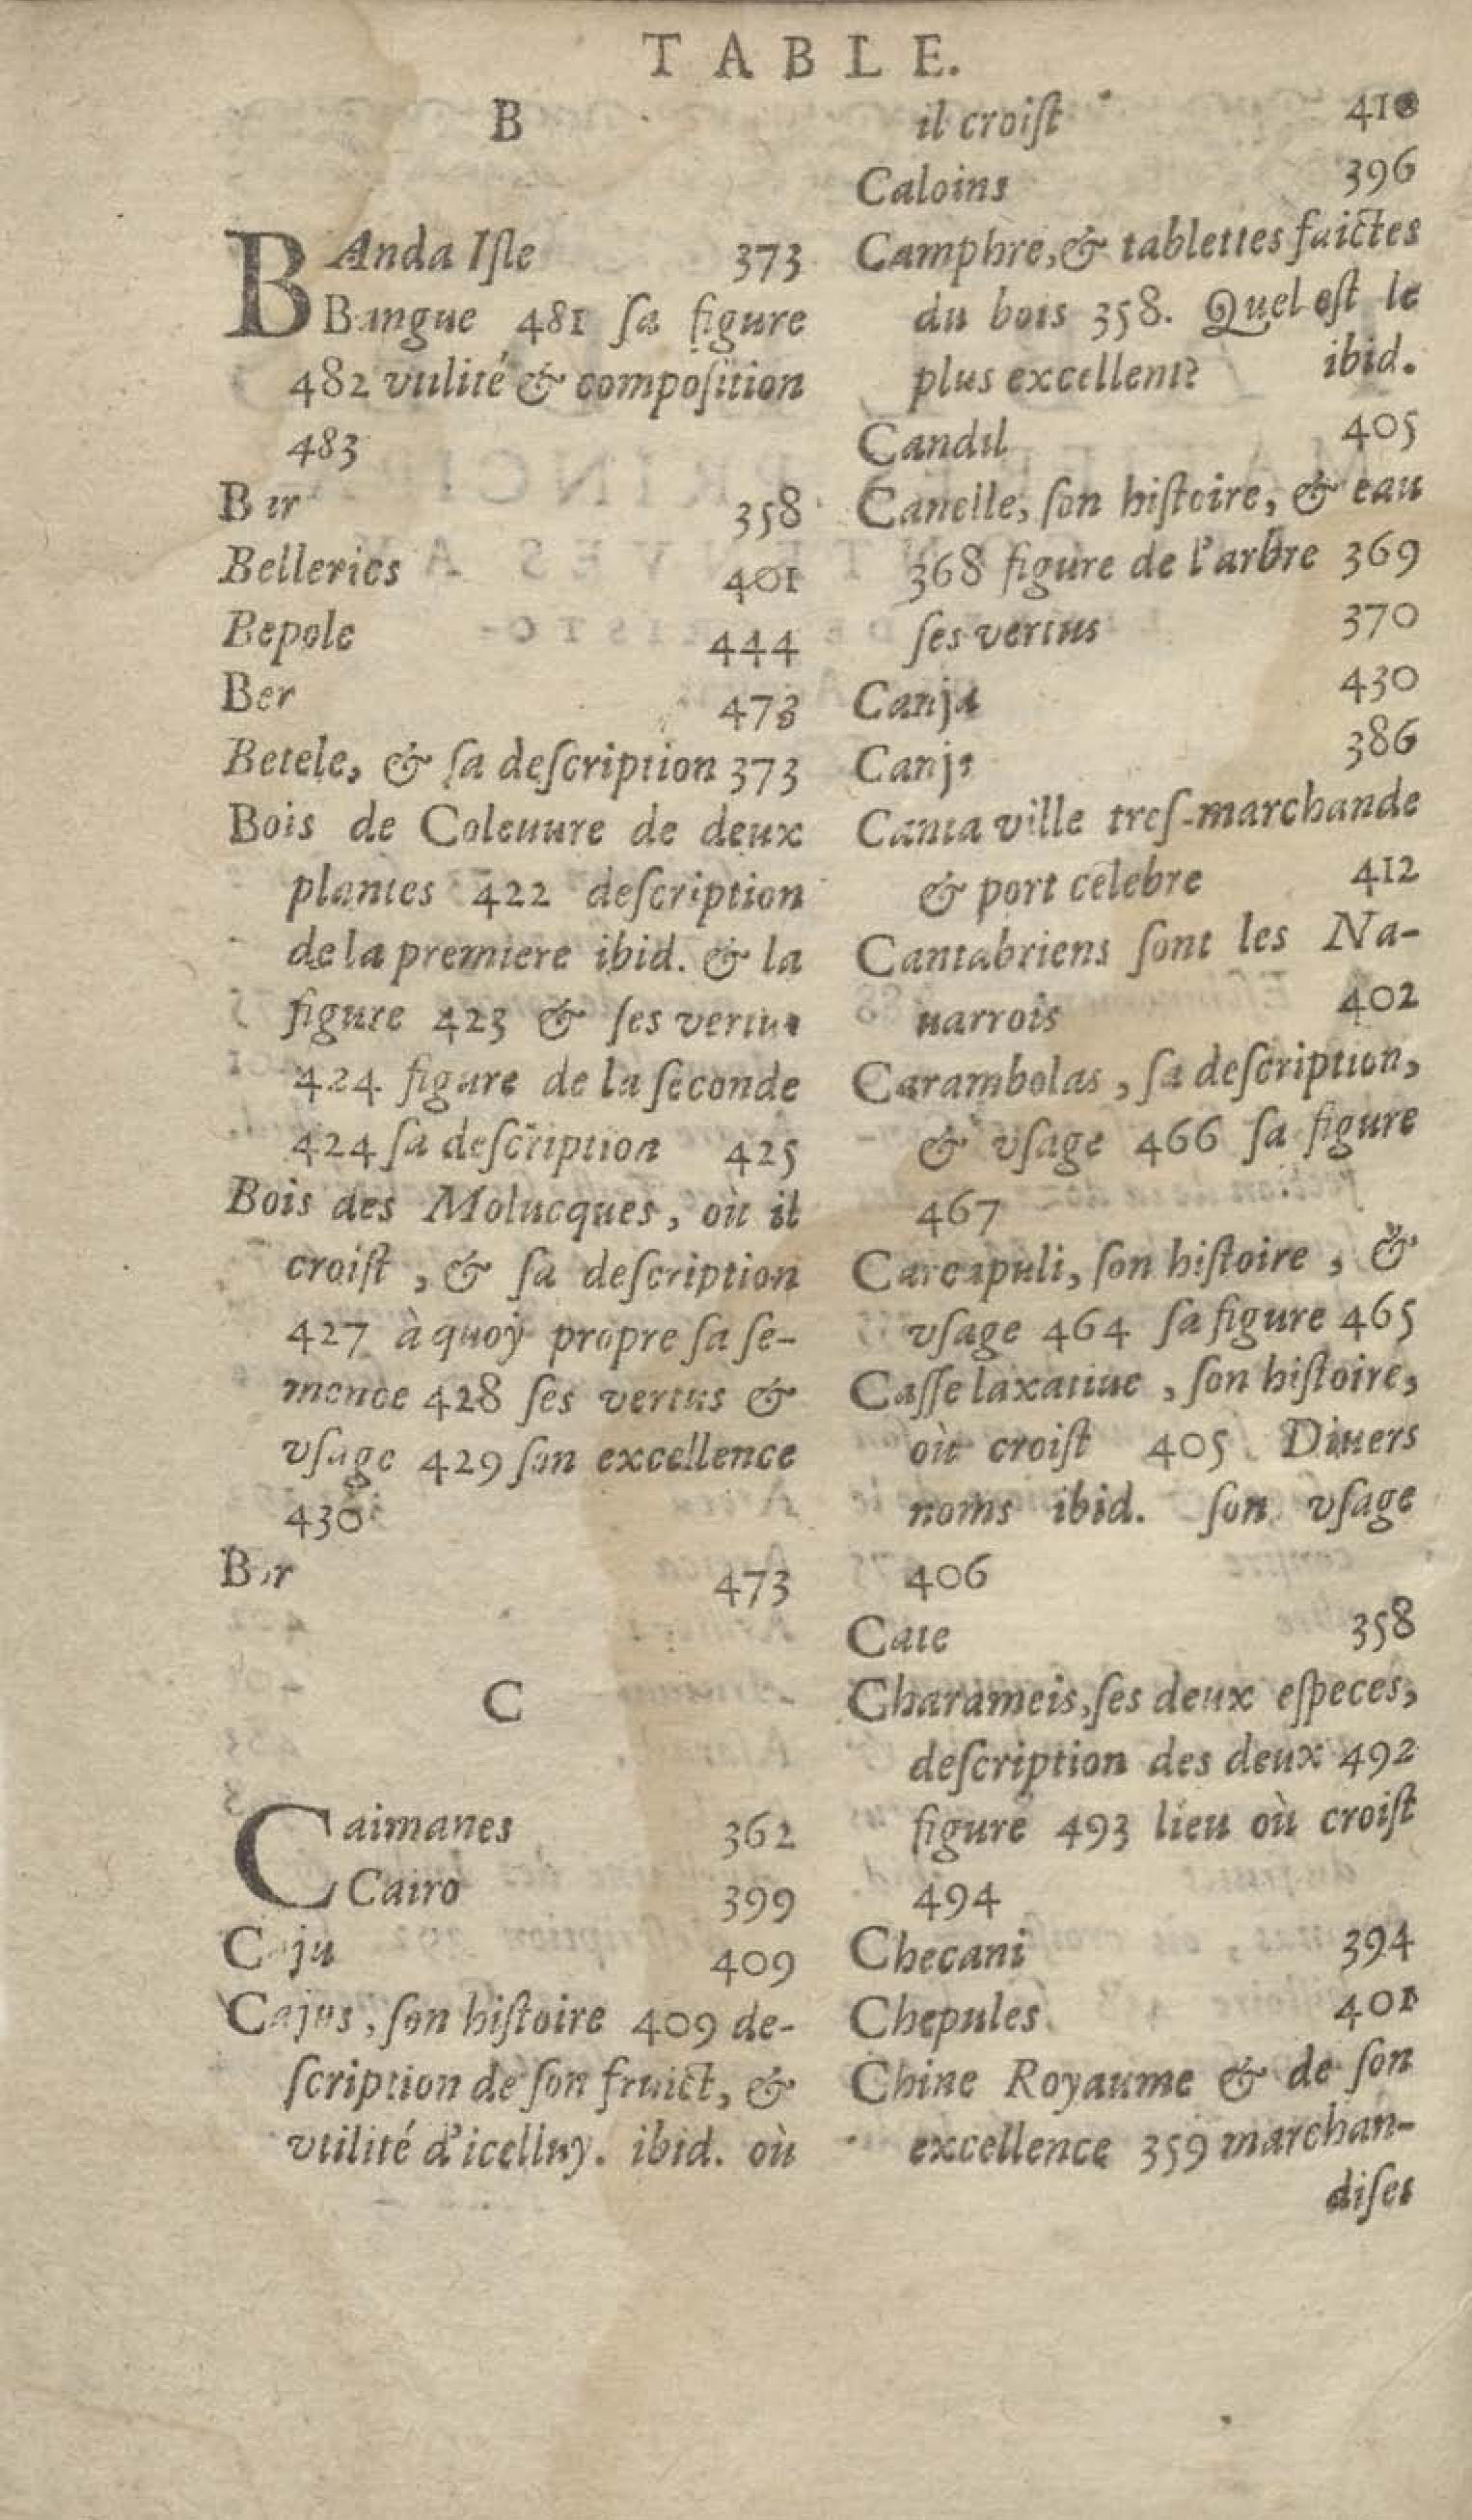 TABLE.
B
BAnda Iſle 373
Bangue 481 ſa figure
482 vtilité & compoſition
483
Bar 358
Belleries 401
Bepole 444
Ber 473
Betele, & ſa deſcription 373
Bois de Coleuure de deux
plantes 422 deſcription
de la premiere ibid. & la
figure 423 & ſes vertus
424 figure de la ſeconde
424 ſa deſcription 425
Bois des Molucques, où il
croiſt, & ſa deſcription
427 à quoy propre ſa ſe-
mence 428 ſes vertus &
vſage 429 ſon excellence
430
Bor 473
C
Caimanes 362
Cairo 399
Caju 409
Cajus, ſon hiſtoire 409 de-
ſcription de ſon fruict, &
vtilité d'icelluy. ibid. où
il croiſt 410
Caloins 396
Camphre, & tablettes faictes
du bois 358. Quel eſt le
plus excellent? ibid.
Candil 405
Canelle, ſon hiſtoire, & eau
368 figure de l'arbre 369
ſes vertus 370
Canja 430
Canjs 386
Canta ville treſ-marchande
& port celebre 412
Cantabriens ſont les Na-
uarrois 402
Carambolas, ſa deſcription,
& vſage 466 ſa figure
467
Carcapuli, ſon hiſtoire, &
vſage 464 ſa figure 465
Caſſe laxatiue, ſon hiſtoire,
où croiſt 405. Diuers
noms ibid. ſon vſage
406
Cate 358
Charameis, ſes deux eſpeces,
deſcription des deux 492
figure 493 lieu où croiſt
494
Checani 394
Chepules 401
Chine Royaume & de ſon
excellence 359 marchan-
diſes